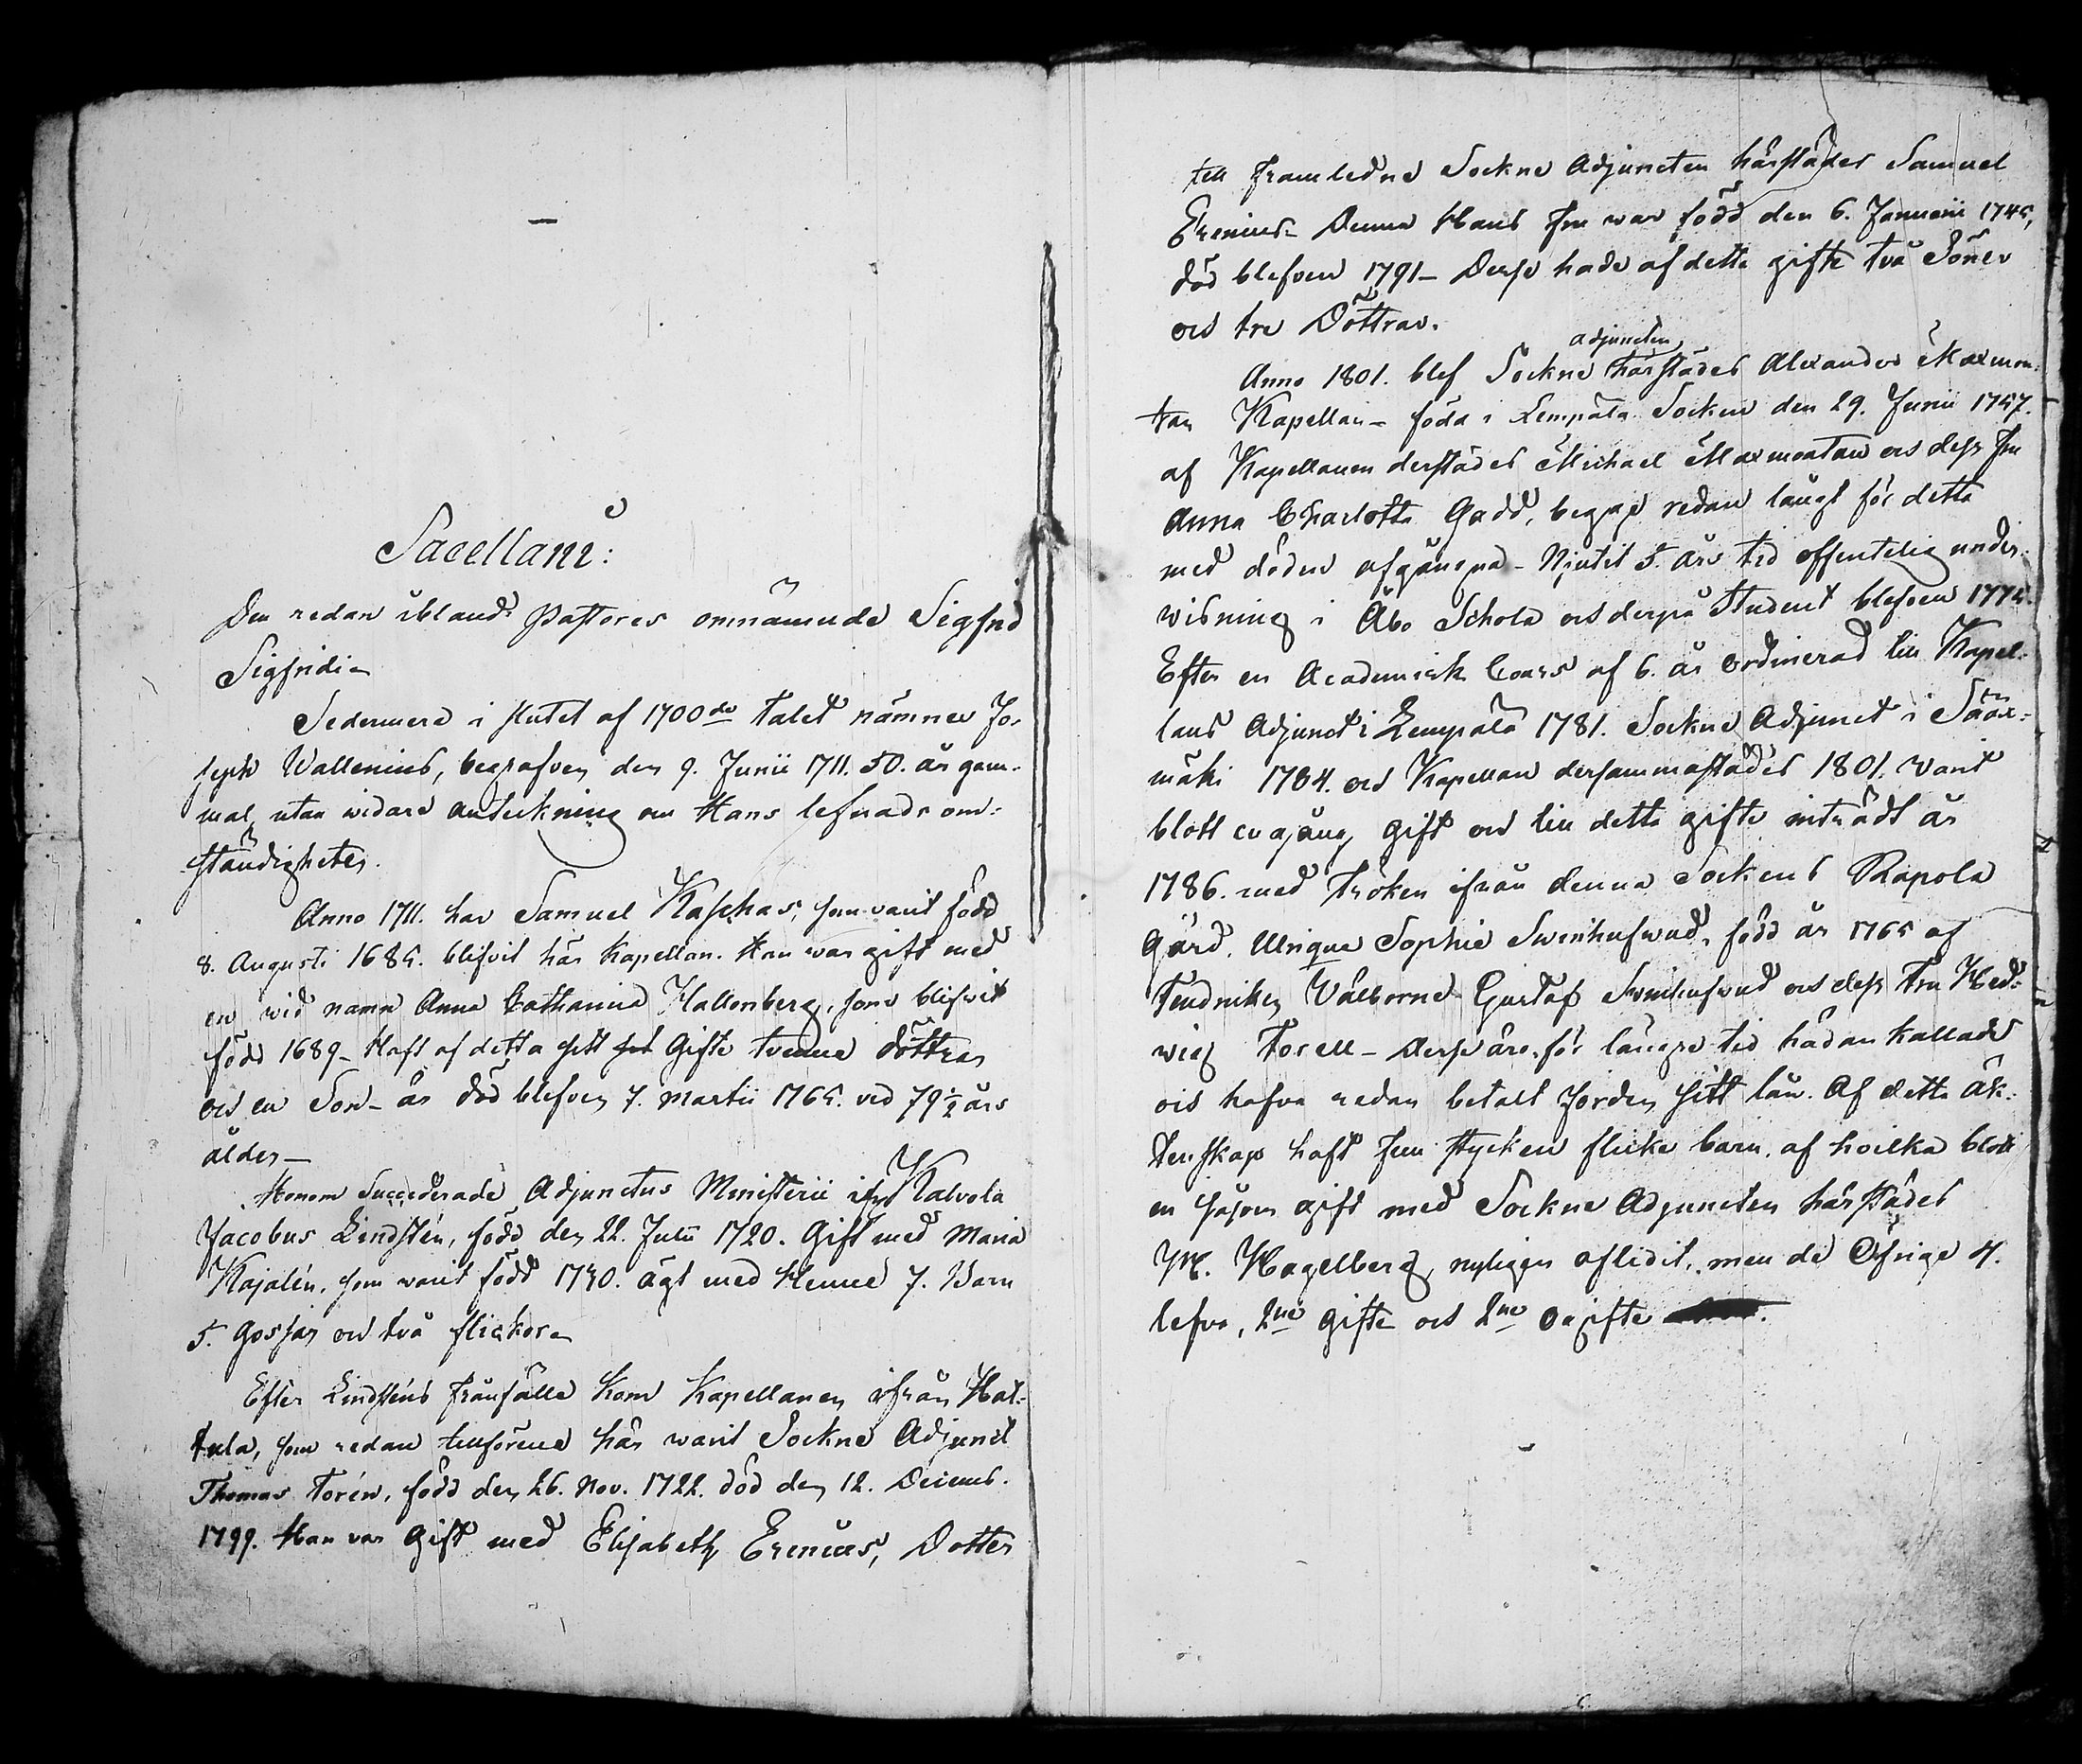 Sacellani:
Den redan ibland Pastores omnämnde Sigfrid
Sigfridi-
Sedermera i slutet af 1700de talet nämnes Jo-
seph Wallenius, begrafven den 9. Junii 1711. 50. år gam-
mal, utan widare anteckning om Hans lefnads om-
ständigheter.
Anno 1711. har Samuel Kaschas, som varit född
8. Augusti 1685. blifvit här Kapellan. Han war gift med
en wid namn Anna Catharina Hallenberg, som blifvit
född 1689- Haft af detta sitt Gifte tvenne döttrar
och en Son- är död blefven 7. Martii 1765. ved 79½ års
ålder-
Honom Succederade Adjunctus Ministerii ifrån Kalvola
Jacobus Lindstén, född den 22. Julii 1720. Gift med Maria
Kajalén, som varit född 1730. ägt med Henne 7. Barn
5. Gossar och två flickor-
Efter Lindsténs frånfälle kom Kapellanen ifrån Hat-
tula, som redan tillförene här warit Sockne Adjunct
Thomas Forén, född den 26. Nov. 1722. död den 12. Decemb.
1799. Han var Gift med Elisabeth Erenius, Dotter
till framledne Sockne Adjuncten härstädes Samuel
Erenius- Denna Hans Fru war född den 6. Januarii 1745,
död blefven 1791- Desse hade af detta gifte två Söner
och tre Döttrar.
adjuncten
Anno 1801. blef Sockne härstädes Alexander Maxmon-
tan Kapellan- föda i Lempälä Socken den 29. Junii 1757.
af Kapellanen derstädes Michael Maxmontan och dess Fru
Anna Charlotta Gadd, begge redan långt för detta
med döden afgångna- Njutit 5. års tid offentelig under-
wisning i Åbo Schola och derpå Student blefven 1775.
Efter en Academisk Cours af 6. år ordinerad till Kapel-
lans Adjunct i Lempälä 1781. Sockne Adjunct i Sääx-
mäki 1784. och Kapellan dersammastädes 1801. Varit
blott en gång gift och till detta gifte inträdt år
1786. med Fröken ifrån denna Sockens Rapola
Gård, Ulrique Sophie Swinhufwud, född år 1765 af
Fendriken Välborne Gustaf Svinhufvud och dess Fru Hed-
wig Forell- Desse äro för längre tid hädan kallade
och hafva redan betalt Jorden sitt lån. Af detta äk-
tenskap haft fem stycken flicke barn, af hvilka blott
en såsom gift med Sockne Adjuncten härstädes
M. Hagelberg, nyligen aflidit, men de öfrige 4.
lefva, 2ne gifte och 2ne ogifte